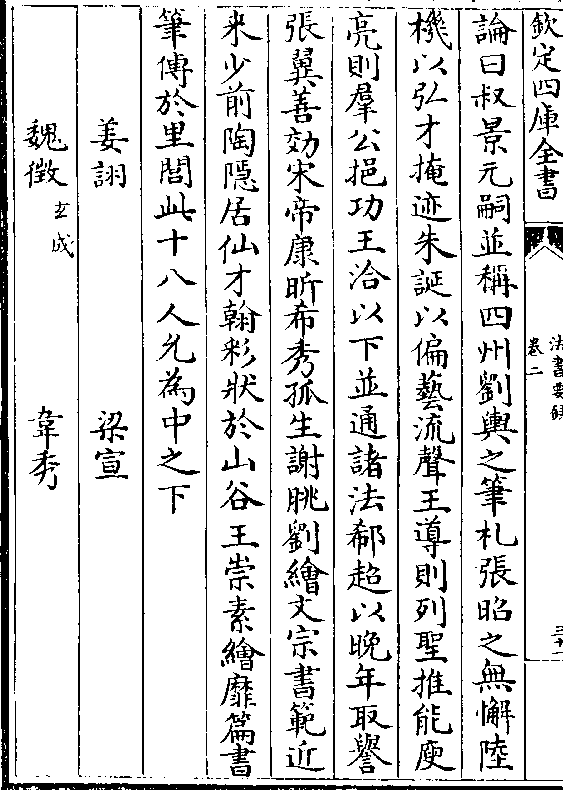 欽定四庫全書
法書要錄
卷二
三十一
論曰叔景元嗣並稱四州劉輿之筆札張昭之無懈陸
機以弘才掩迹朱誕以偏藝流聲王導則列聖推能庾
亮則羣公挹功王洽以下並通諸法郗超以晚年取譽
張翼善効宋帝康昕希秀孤生謝朓劉繪文宗書範近
来少前陶隱居仙才翰彩狀於山谷王崇素繪靡篇書
筆傳於里閭此十八人允為中之下
姜詡 梁宣
魏徵玄成 韋秀